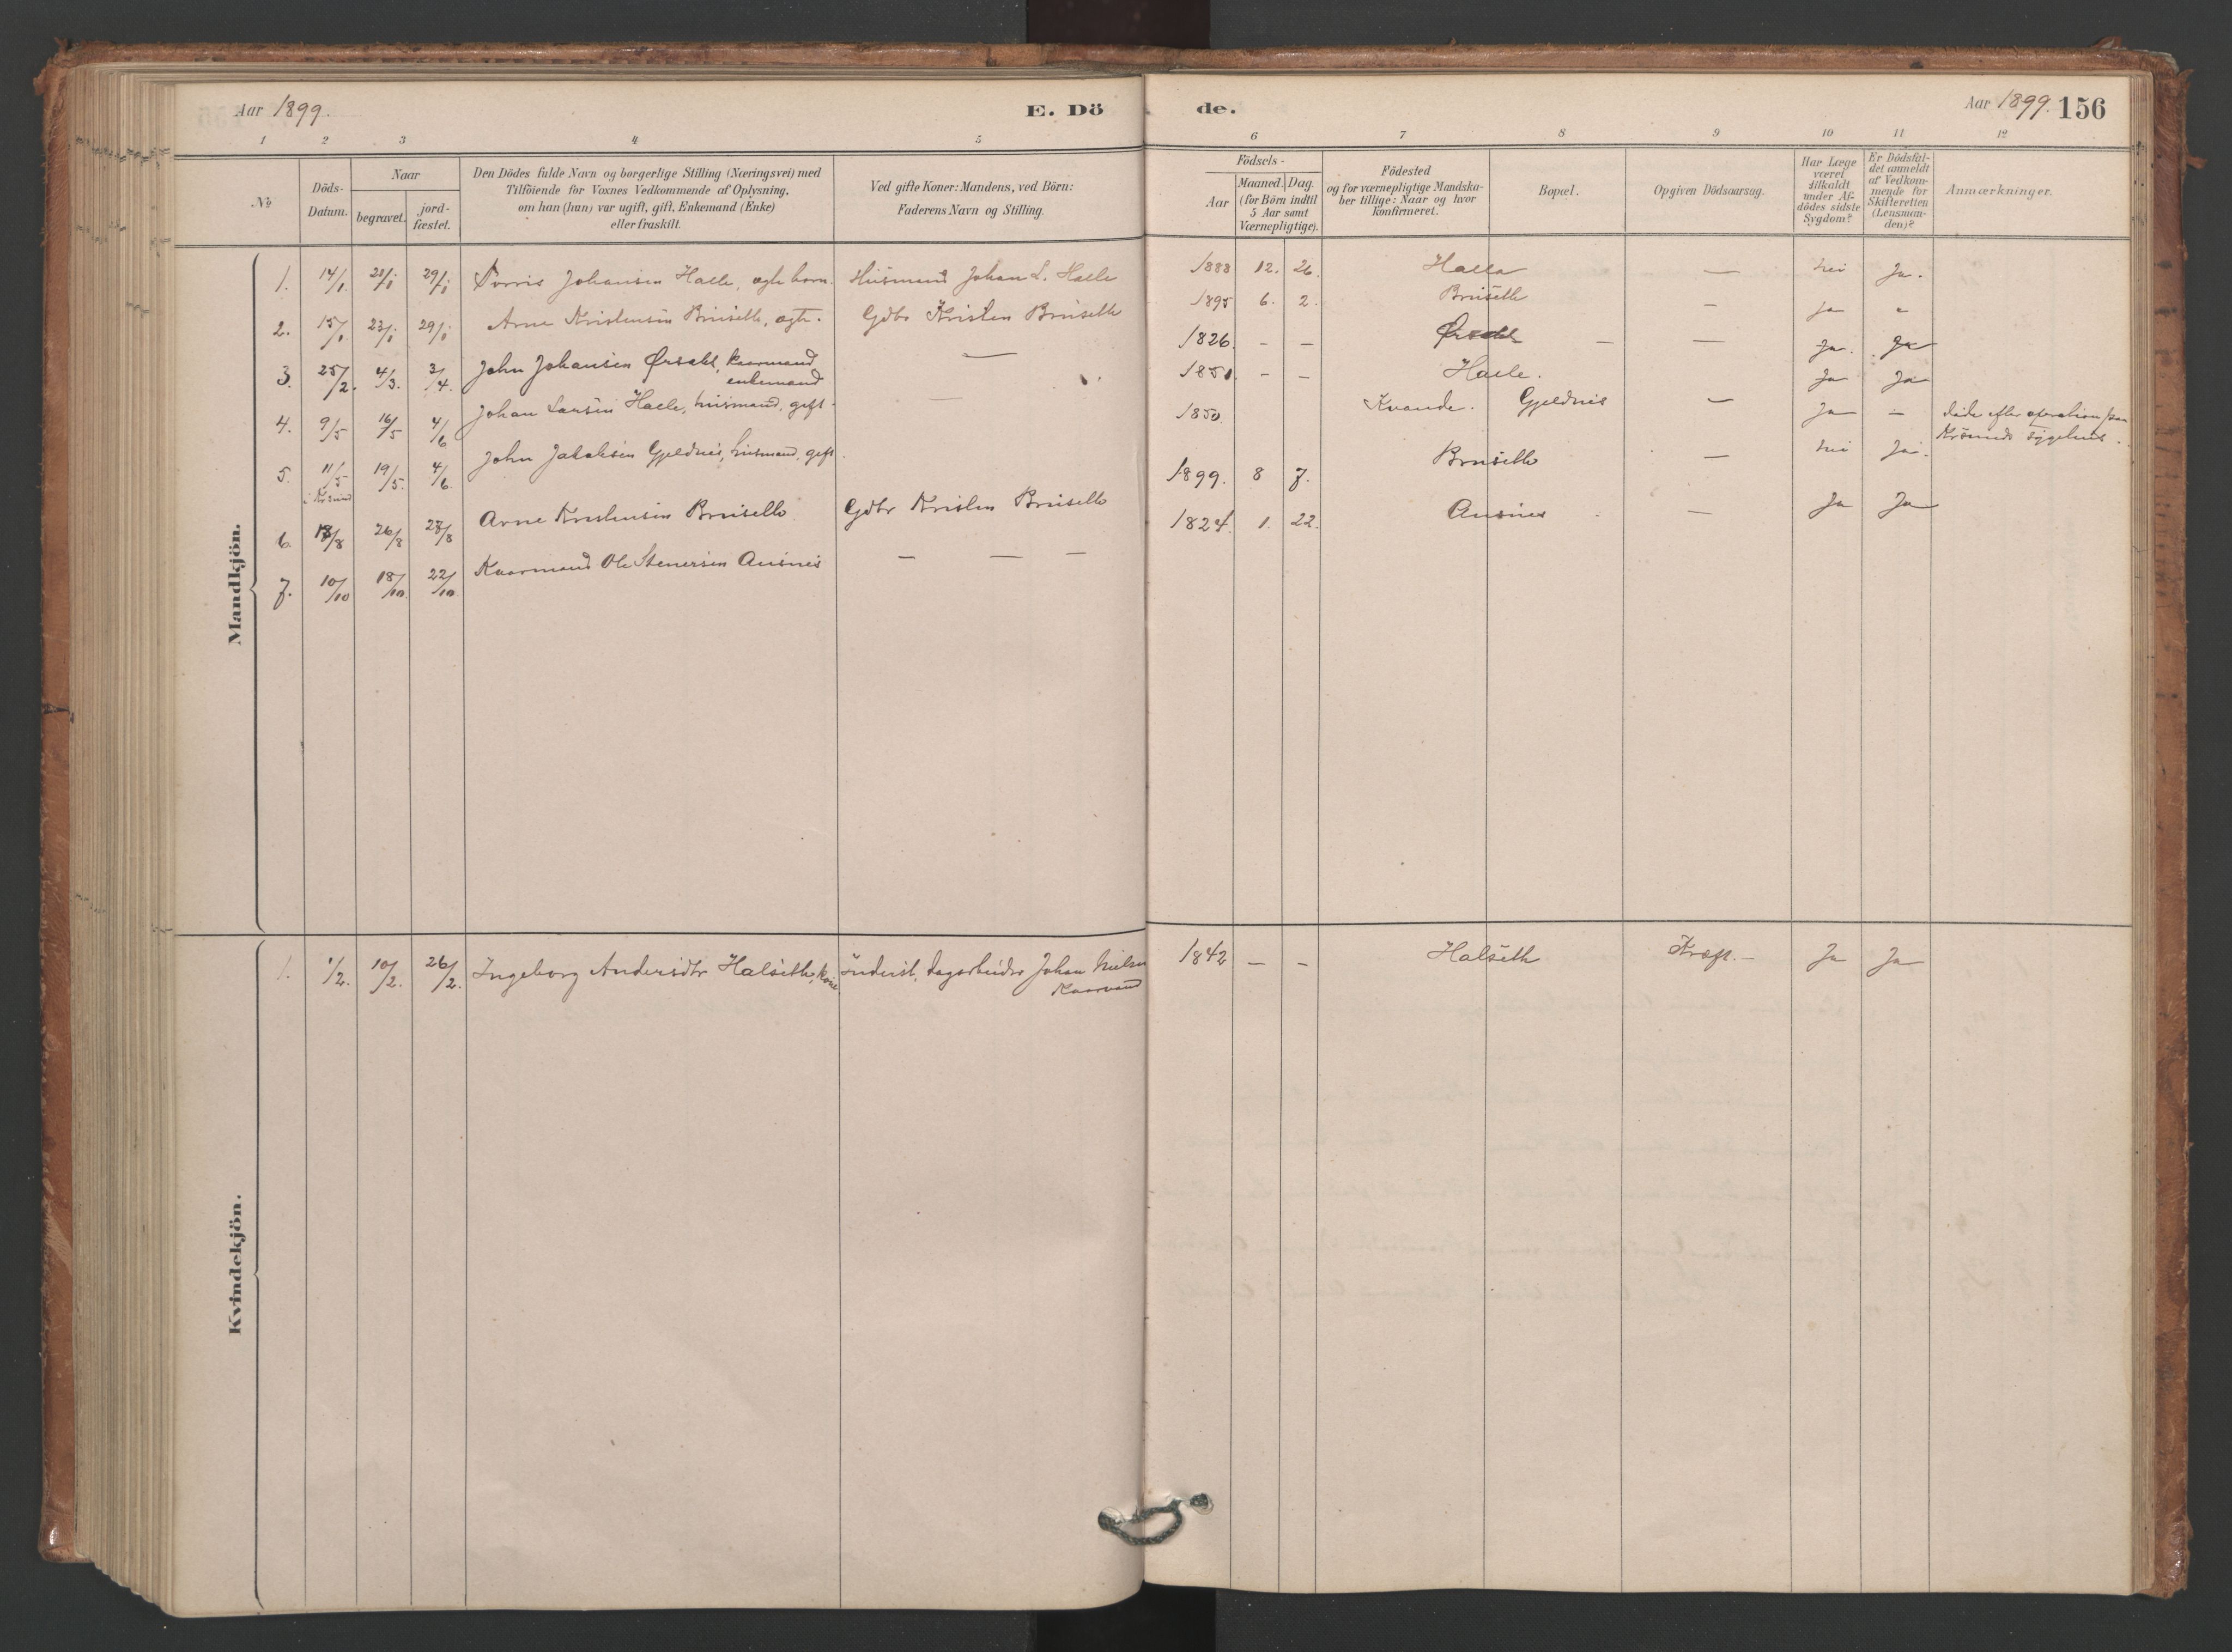 Aar 1899.
E. Dö
de.
Aar 1899. 156
1 2 3 4 5 6 7 8 9 10 11 12
No
Döds-Datum.
Naar
begravet.
jord-fæstet.
Den Dödes fulde Navn og borgerlige Stilling (Næringsvei) med
Tilföiende for Voxnes Vedkommende af Oplysning,
om han (hun) var ugift, gift, Enkemand (Enke)
eller fraskilt.
Ved gifte Koner: Mandens, ved Börn:
Faderens Navn og Stilling.
Födsels-
Aar
Maaned. Dag.
(for Börn indtil
5 Aar samt
Værnepligtige).
Födested
og for værnepligtige Mandska-
ber tillige: Naar og hvor
konfirmeret.
Bopæl.
Opgiven Dödsaarsag.
Har Læge
været
tilkaldt
under Af-
dödes sidste
Sygdom?
Er Dödsfal-
det anmeldt
af Vedkom-
mende for
Skifteretten
(Lensman-
den)?
Anmærkninger.
Mandkjön.
1. 14/1 21/1 29/1 Johansen Halle, ægte barn. Husmand Johan L. Halle 1888 12. 26. Halle — nei Ja.
2. 15/1 23/1 29/1 Arne Kristensen Brüseth, ægte. Gdbr Kristen Brüseth 1895 6. 2. Brüseth — ja "
3. 25/2. 4/3. 3/4. John Johansen Ørsahl, kaarmand
enkemand — 1826. – – Ørsahl – — Ja. Ja
4. 9/5 16/5 4/6 Johan Larsen Halle, husmand, gift. — 1851. – – Halle. Ja Ja
5. 11/5 19/5. 4/6. John Jakobsen Gjeldnes, husmand, gift. 1850 Kvande. Gjeldnes — Ja — døde efter operation paa
i Krsund
Krsunds sygehus.
6. 18/8 26/8 27/8 Arne Kristensen Brüseth Gdbr Kristen Brüseth 1899. 8 7. Brüseth — nei Ja.
7. 10/10 18/10. 22/10. Kaarmand Ole Stenersen Ausnes — — — 1824. 1. 22. Ausnes — Ja Ja
Kvindekjön.
1. 1/2. 10/2. 26/2. Ingeborg Andersdtr Halseth, kone Inderst, dagarbeider Johan Nielsen
Kaarvand
1842 – – Halseth Kræft. – Ja Ja